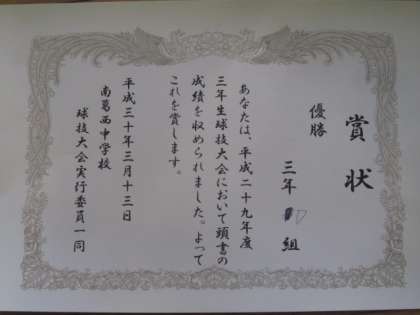 賞状
優勝
三年 組
あなたは、平成二十九年度
三年生球技大会において頭書の
成績を収められました。よって
これを賞します。
平成三十年三月十三日
南葛西中学校
球技大会実行委員一同